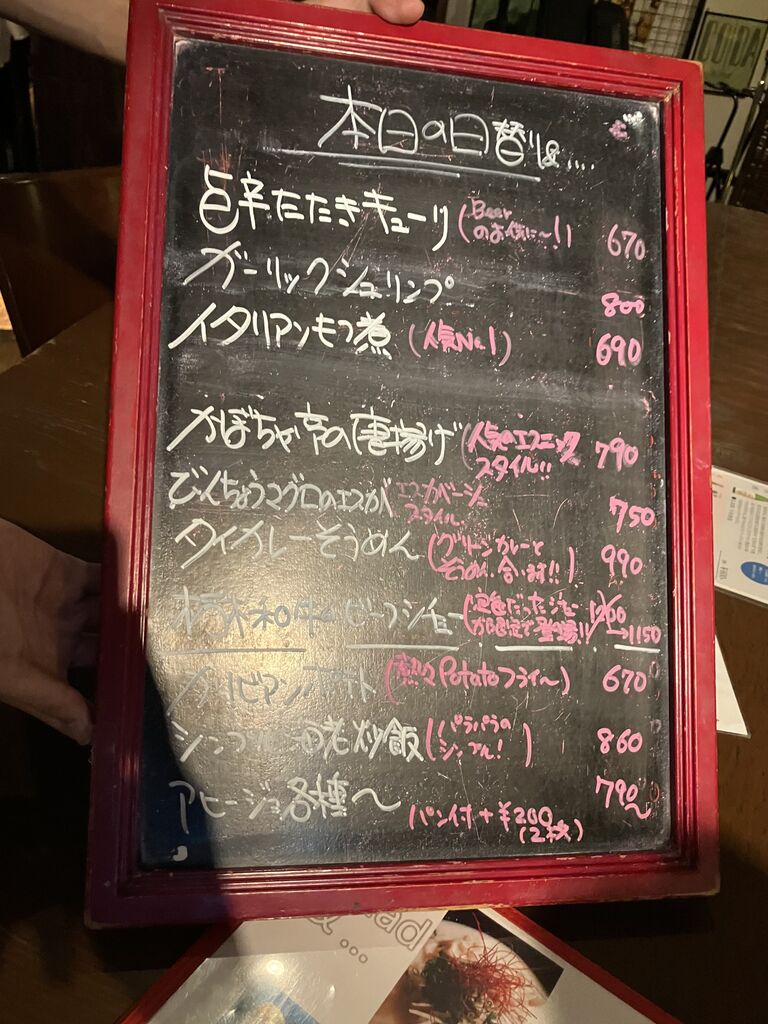 本日の日替りは....
旨辛たたきキューリ (Beerのお供に〜!) 670
ガーリックシュリンプ 800
イタリアンモツ煮 (人気No.1) 690
かぼちゃ の唐揚げ (人気のエスニックスタイル!! 790
びんちょうマグロのエスカ エスカベーシュスタイル 750
タイカレーそうめん (グリーンカレーとそうめん、合います!!) 990
和牛 ビーフシチュー 1200→1150
カリビアンポテト (熱々Potatoフライ〜) 670
シンプル 炒飯 (パラパラのシンプル!) 860
アヒージョ各種〜 790〜
パン付+¥200
(2枚)
CODA